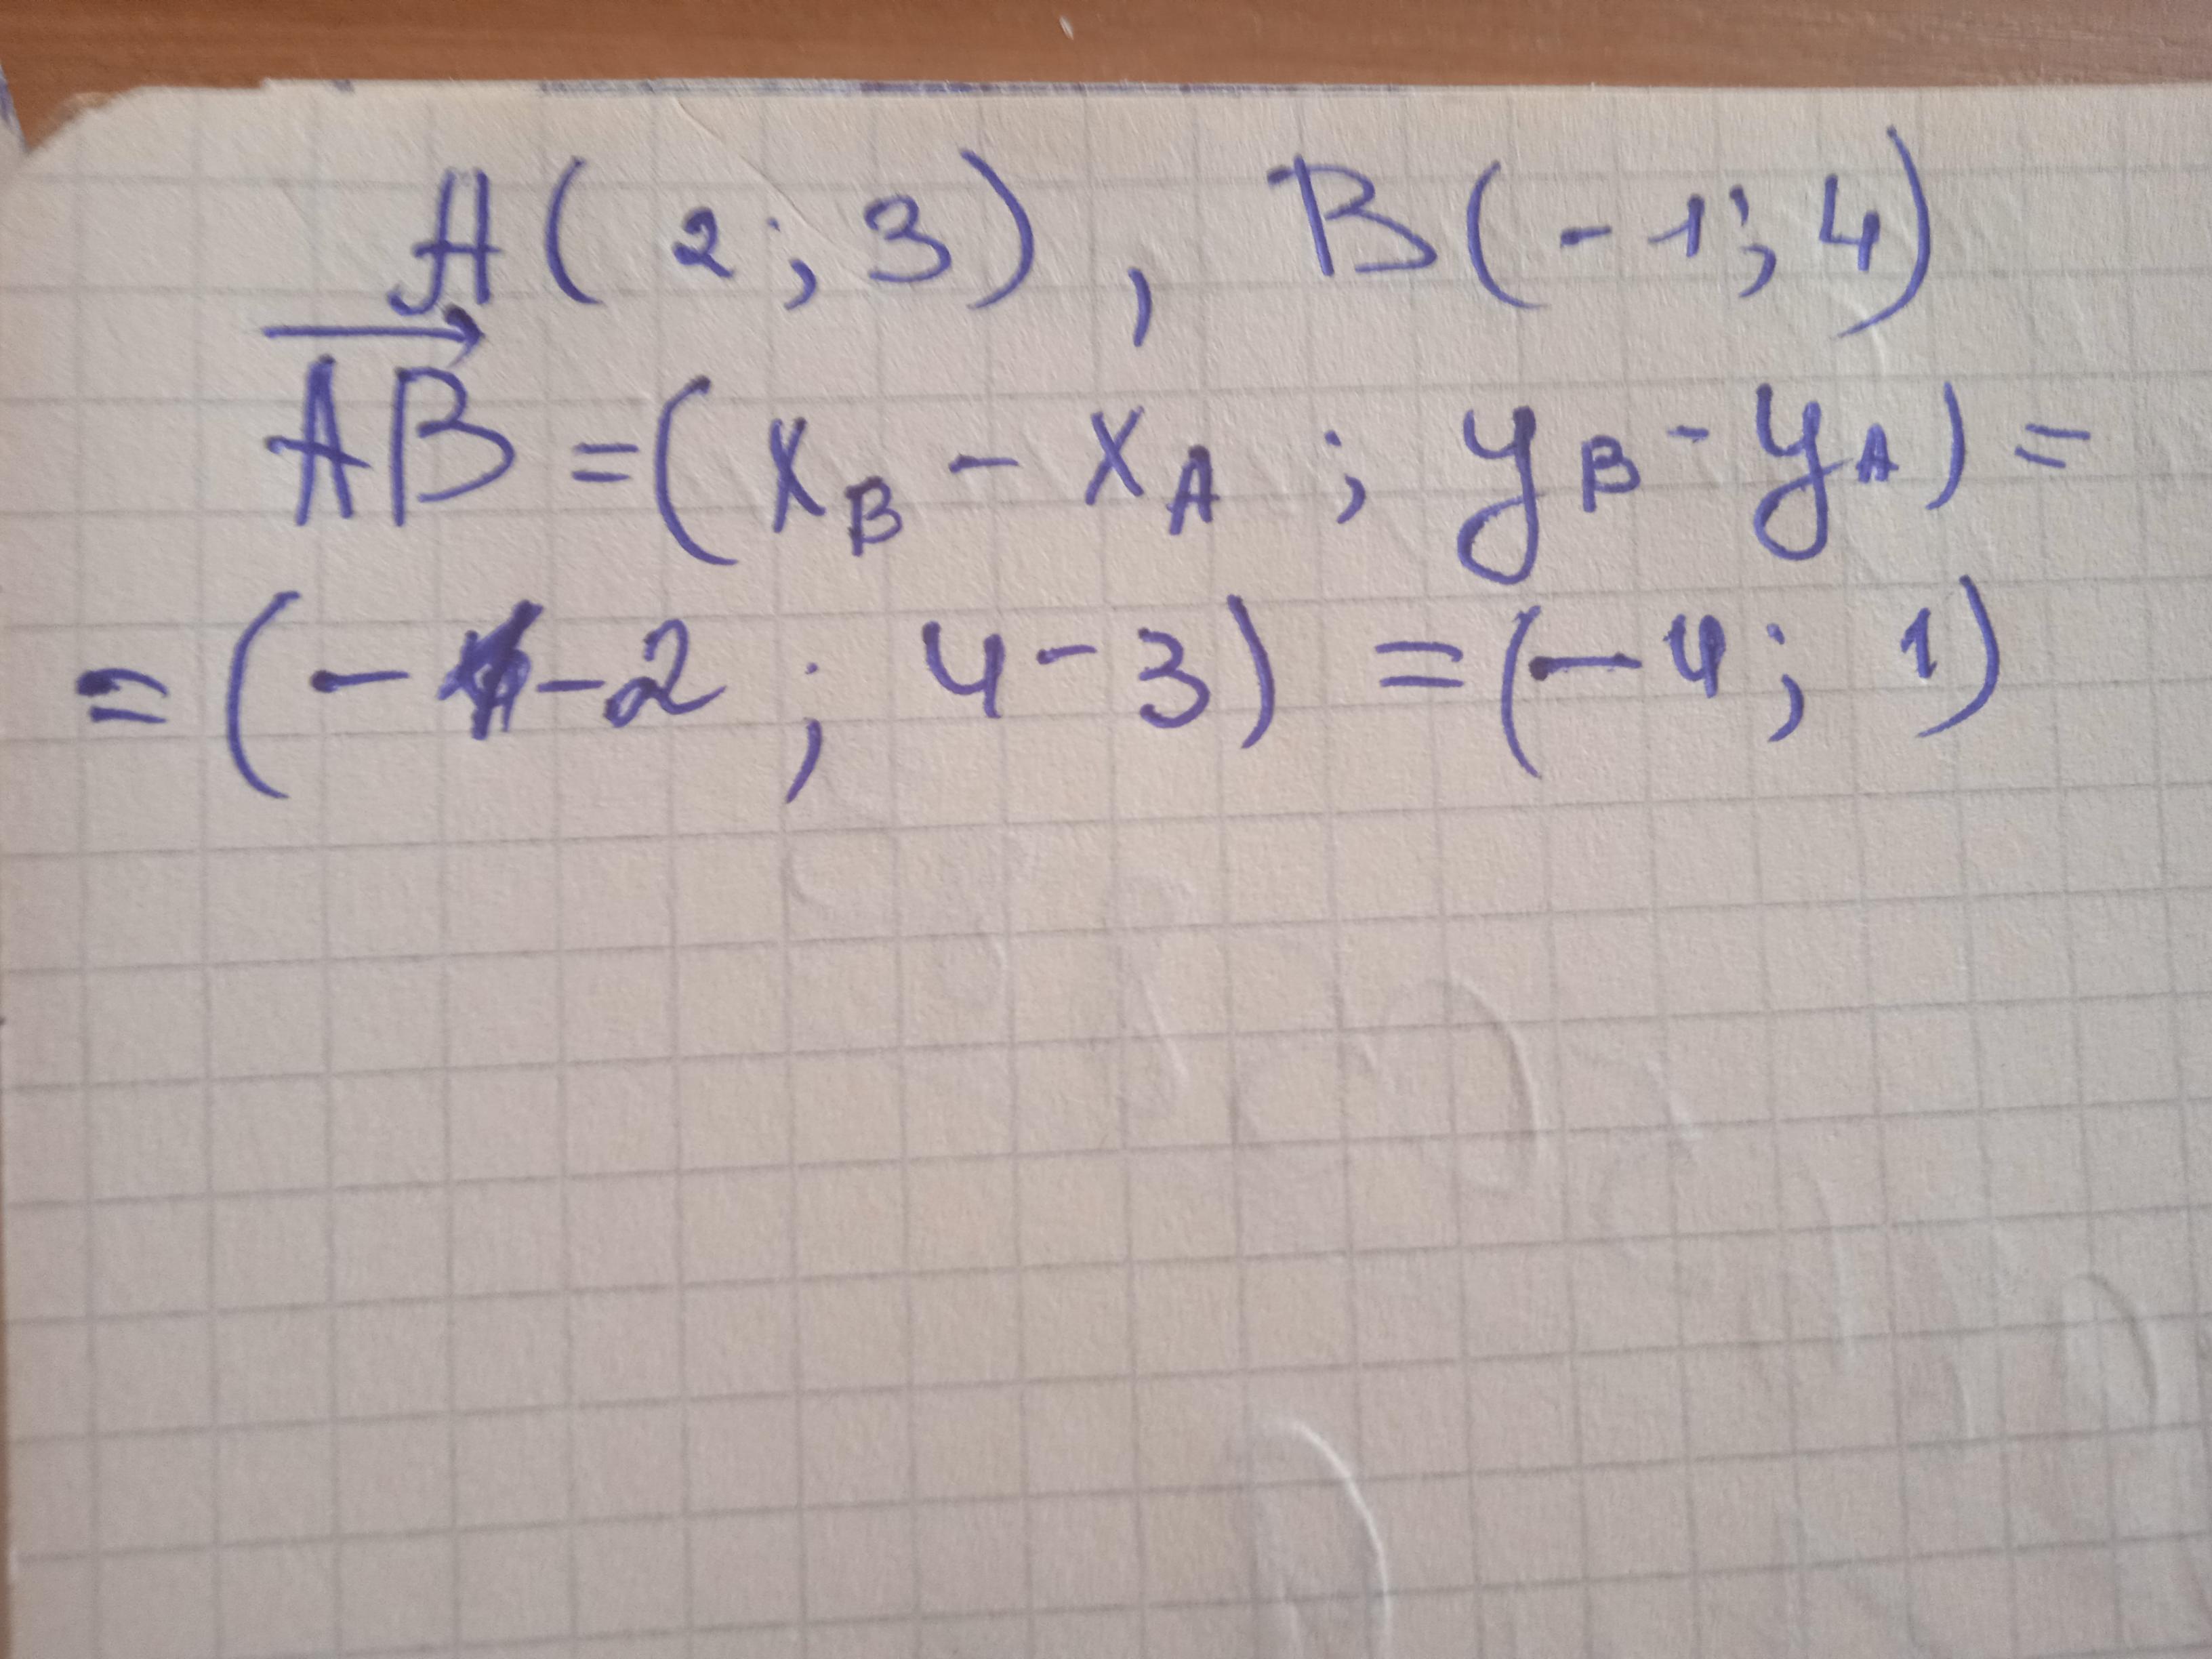 A(2;3), B(-1;4)
AB = (x_B - x_A ; y_B - y_A) =
= (- -2 ; 4-3) = (-4; 1)